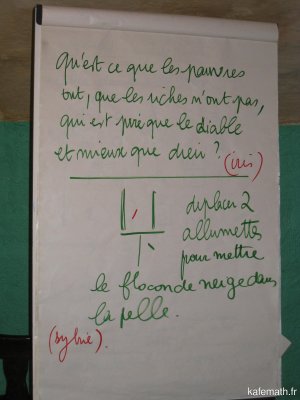 Qu'est ce que les pauvres
ont, que les riches n'ont pas,
qui est pire que le diable
et mieux que dieu ?
(iris)
déplacer 2
allumettes
pour mettre
le flocon de neige dans
la pelle.
(sylvie).
kafemath.fr